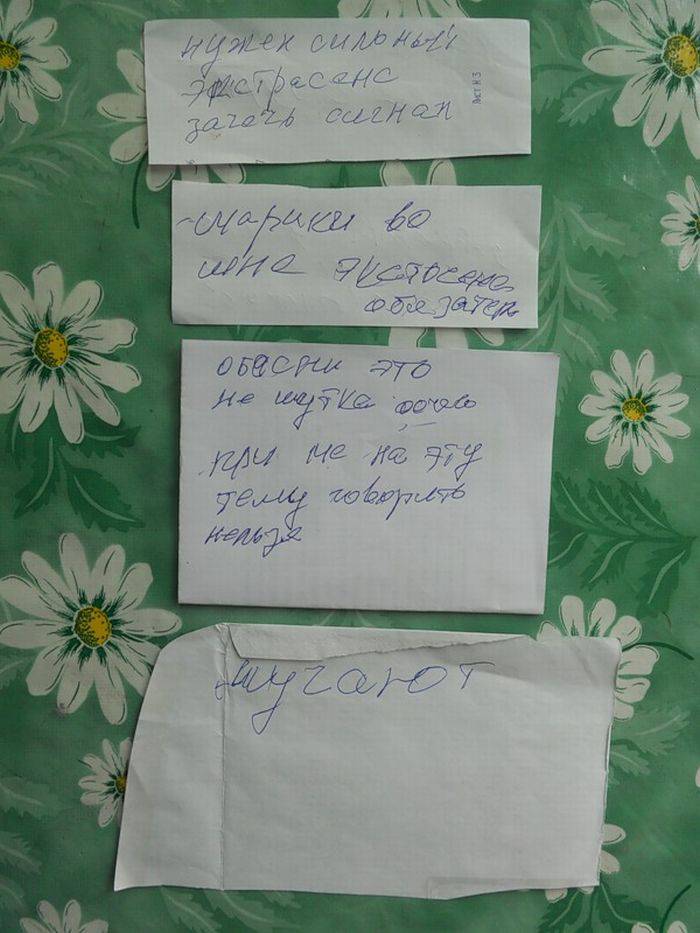 нужен сильный
экстрасенс
зачечь сигнал
Лист Н 3
шарики во
мне экстросенс
обязатель
обясни это
не шутка
при ме на эту
тему говорить
нельзя
мучают